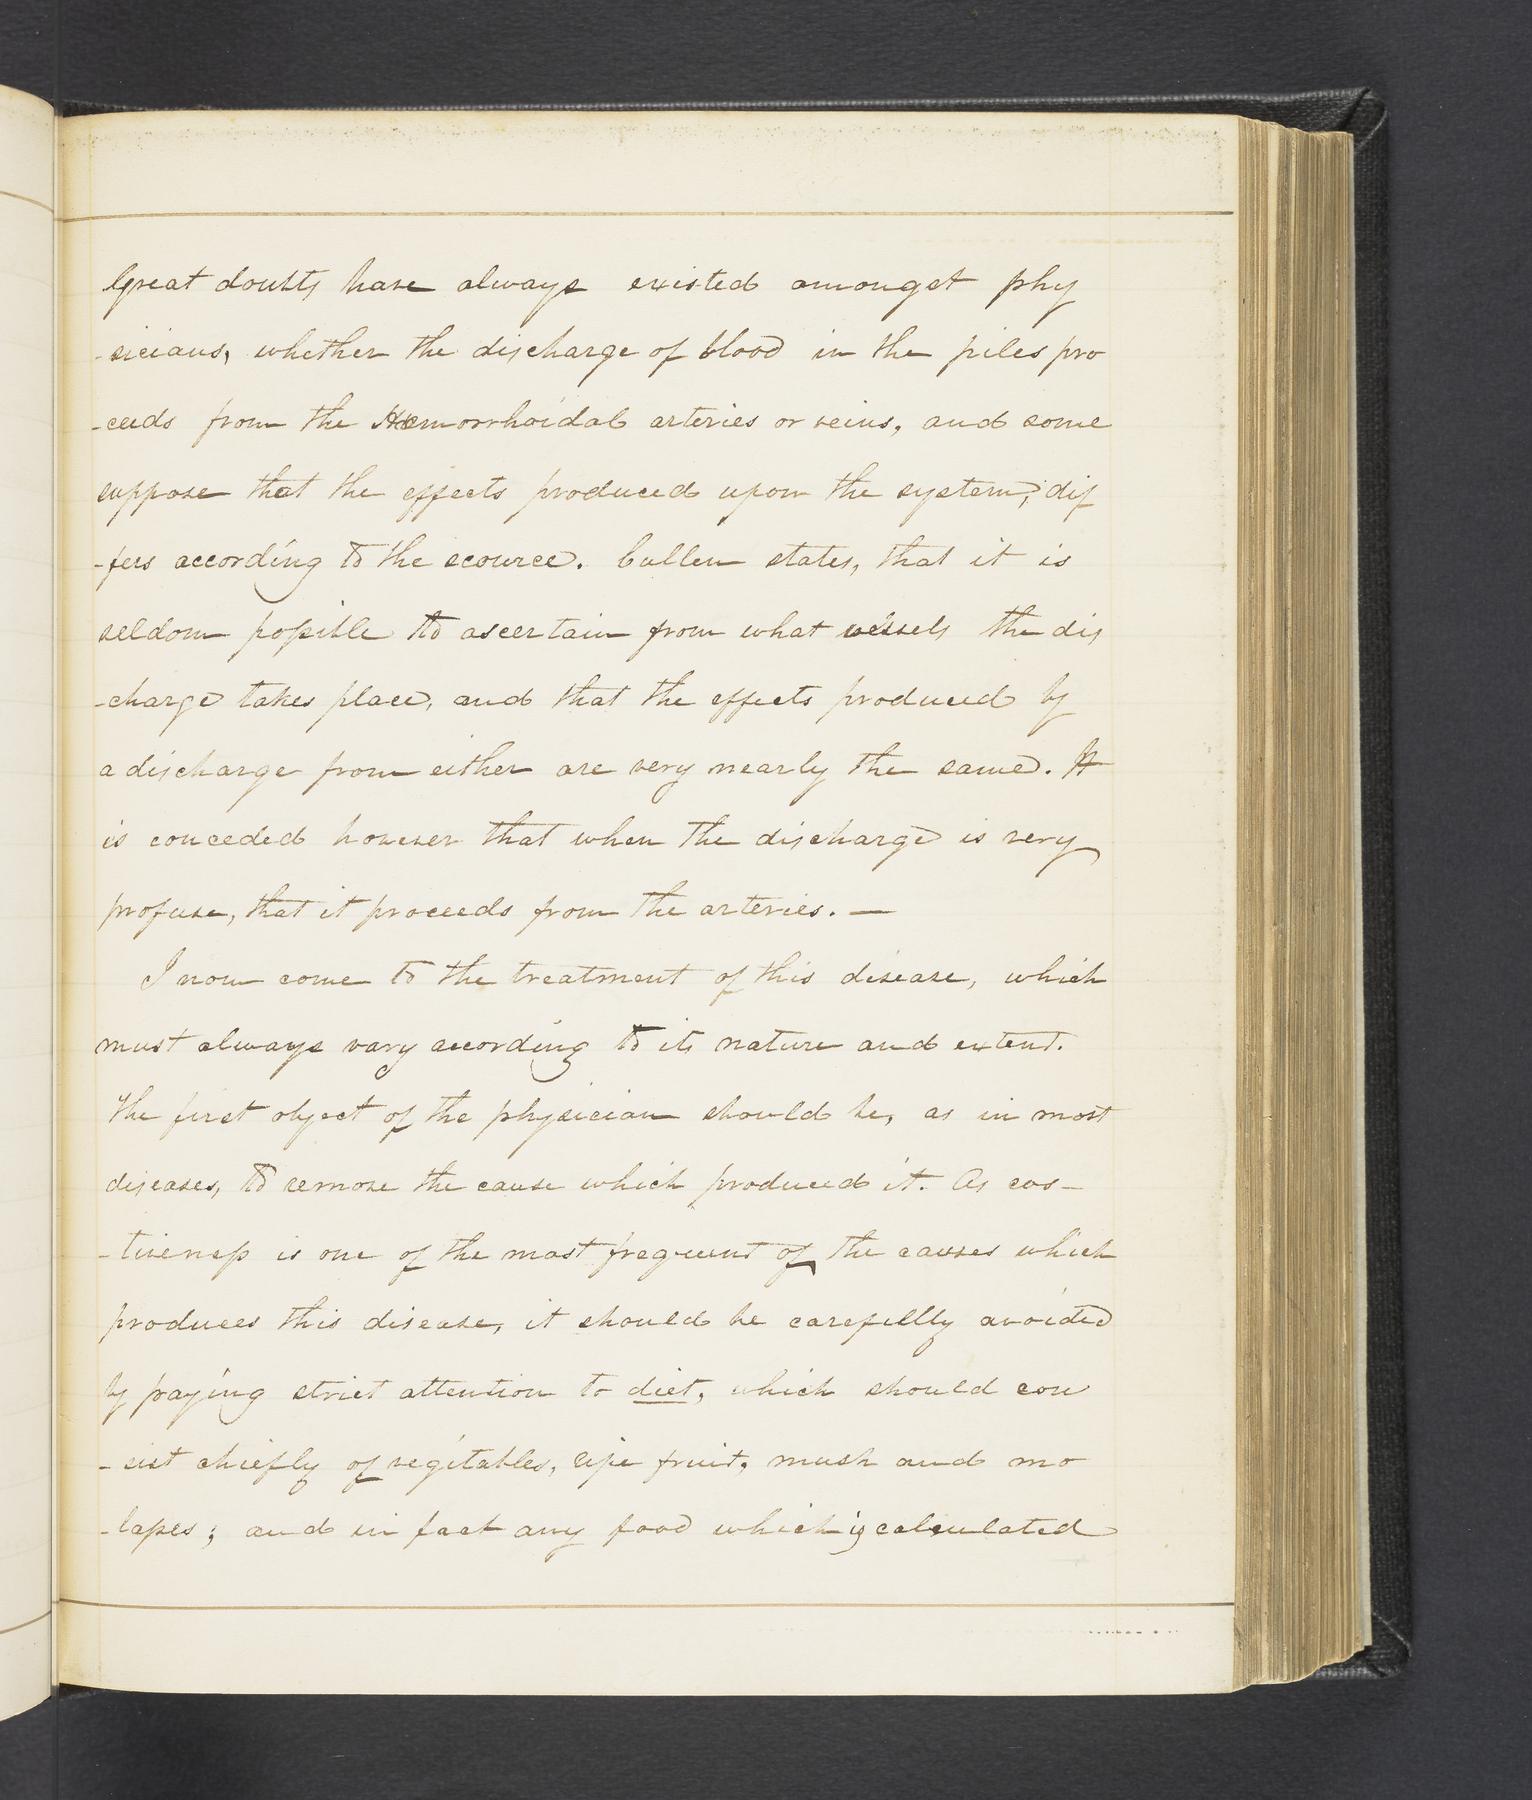 Great doubts have always existed amongst phy
-sicians, whether the discharge of blood in the piles pro
-ceeds from the Hæmorrhoidal arteries or veins, and some
suppose that the effects produced upon the system, dif
-fers according to the scource. Cullen states, that it is
seldom possible to ascertain from what vessels the dis
-charge takes place, and that the effects produced by
a discharge from either are very nearly the same. It
is conceded however that when the discharge is very
profuse, that it proceeds from the arteries. —
I now come to the treatment of this disease, which
must always vary according to its nature and extent.
The first object of the physician should be, as in most
diseases, to remove the cause which produced it. As cos-
-tiveness is one of the most frequent of the causes which
produces this disease, it should be carefully avoided
by paying strict attention to diet, which should con
-sist chiefly of vegitables, ripe fruit, mush and mo
-lasses; and in fact any food which is calculated